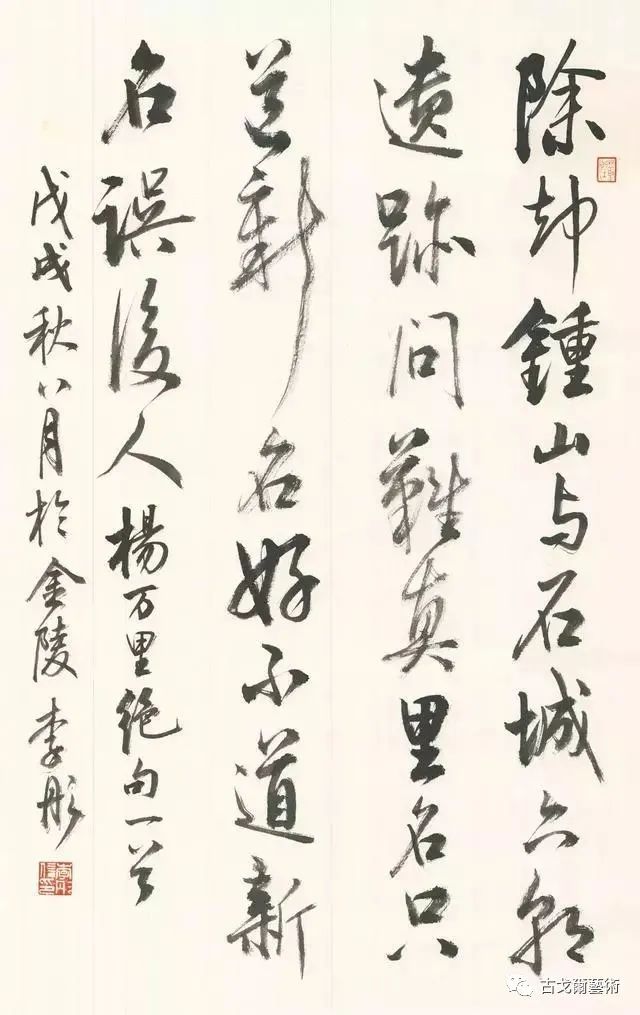 除却鍾山与石城六朝
遗跡问難真里名只
道新名好不道新
名誤後人楊万里絶句一首
戊戌秋八月於金陵李彤
古戈爾藝術